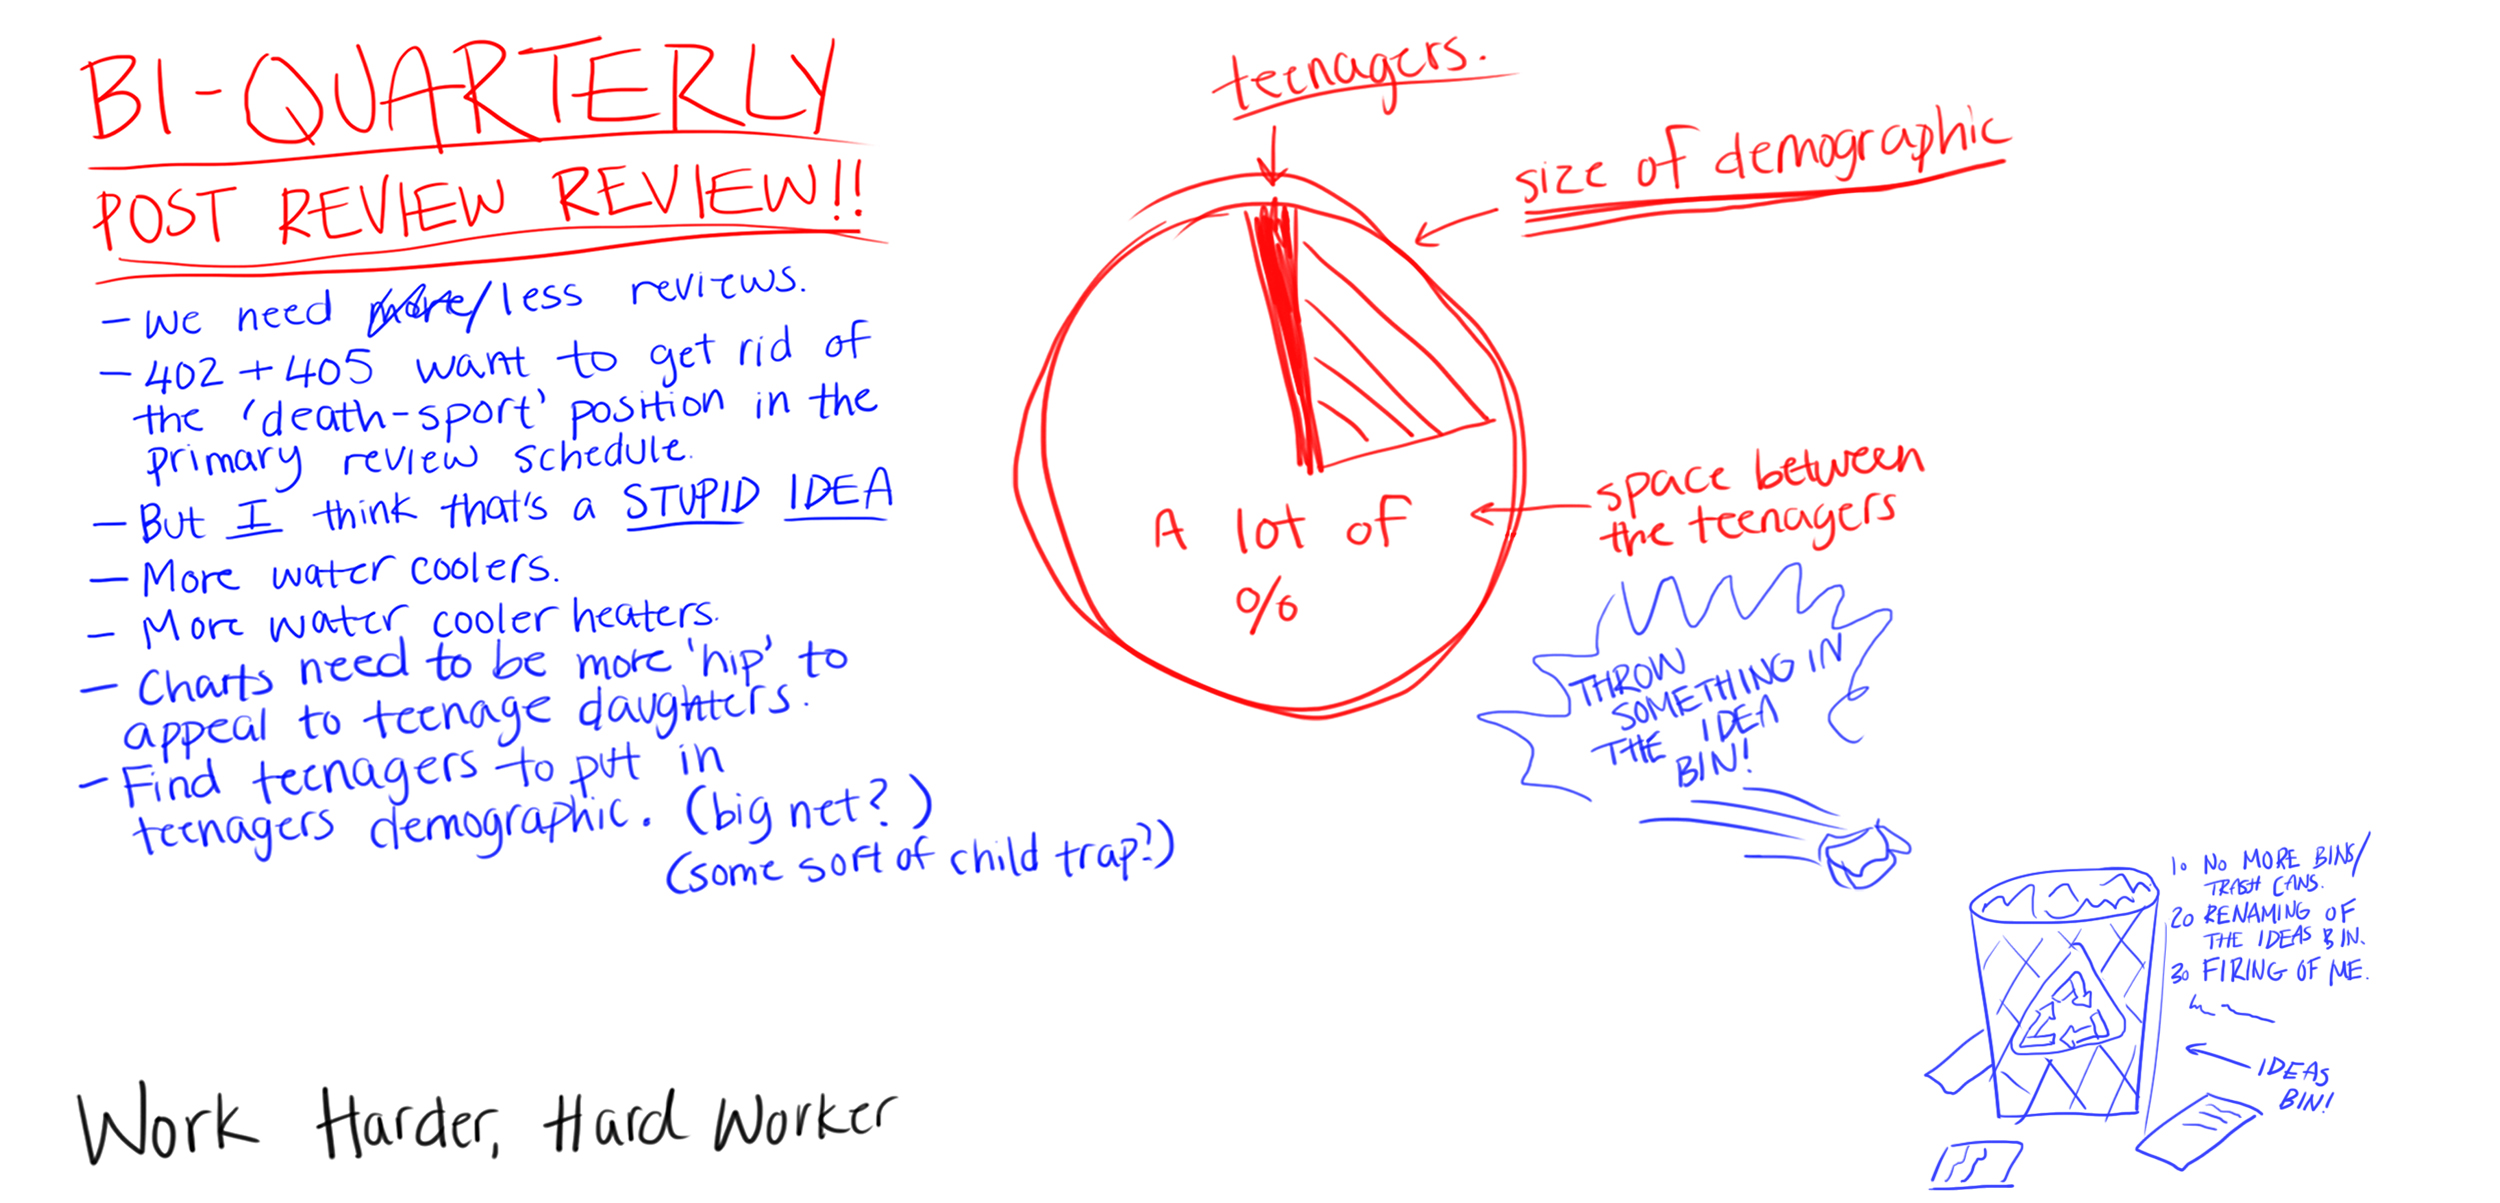 BI-QUARTERLY
POST REVIEW REVIEW!!
- We need more/less reviews.
- 402 + 405 want to get rid of
the 'death-sport' position in the
primary review schedule.
- But I think that's a STUPID IDEA
- More water coolers.
- More water cooler heaters.
- Charts need to be more 'hip' to
appeal to teenage daughters.
- Find teenagers to put in
teenagers demographic. (big net?)
(some sort of child trap?)
Work Harder, Hard Worker
teenagers.
size of demographic
A lot of
%
space between
the teenagers
THROW
SOMETHING IN
THE IDEA
BIN!
1. NO MORE BINS/
TRASH CANS.
2. RENAMING OF
THE IDEAS BIN.
3. FIRING OF ME.
IDEAS
BIN!